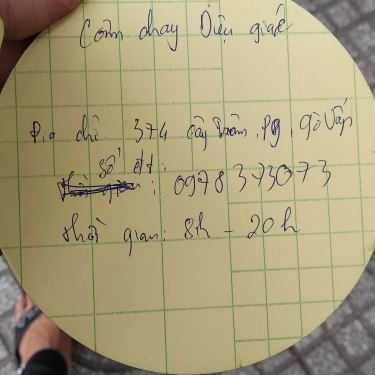 Cơm chay Diệu giác
Địa chỉ 374 cây trâm, P9, gò Vấp
Số đt:
: 0978373073
thời gian: 8h - 20h